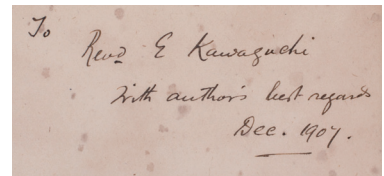 To
Revd E Kawaguchi
With author's best regards
Dec. 1907.